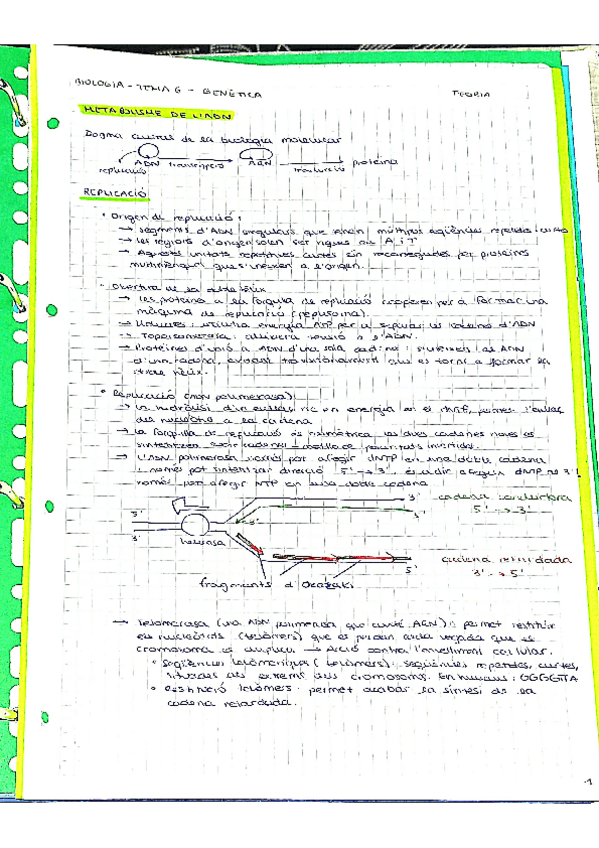 BIOLOGIA - TEMA 6 - GENÈTICA
TEORIA
METABOLISME DE L'ADN
Dogma central de la biologia molecular
ADN transcripció ARN traducció proteïna
replicació
REPLICACIÓ
• Origen de replicació:
→ segments d'ADN singulars que tenen múltiples seqüències repetides curtes
→ Les regions d'origen solen ser riques en A i T
→ Aquestes unitats repetitives curtes són reconegudes per proteïnes
que s'uneixen a l'origen.
• Obertura de la doble hèlix
→ Les proteïnes a la forquilla de replicació cooperen per a formar una
màquina de replicació
→ utilitza energia ATP per a separar les cadenes d'ADN
→ Topoisomerasa: tensió a l'ADN.
→ Proteïnes d'unió a ADN d'una sola cadena: s'uneixen a ADN
d'una cadena, evitant que es torni a formar la
hèlix.
• Replicació (ADN polimerasa):
→ La hidròlisi d'un enllaç ric en energia en el dNTP, permet l'enllaç
del nucleòtid a la cadena
→ La forquilla de replicació és asimètrica, les dues cadenes noves es
→ L'ADN polimerasa només pot afegir dNTP en una doble cadena
i només pot sintetitzar direcció 5' → 3', és a dir afegir dNTP no 3'!
només pot afegir NTP en una doble cadena
3' cadena conductora
5' → 3'
5'
3'
helicasa
5'
cadena retardada
3' → 5'
fragments d'Okazaki
→ Telomerasa (una ADN polimerasa que conté ARN): permet restituir
els nucleòtids (telòmers) que es perden cada vegada que es
cromosoma es → Acció contra l'envelliment cel·lular.
• Seqüències telomèriques (telòmers): seqüències repetides, curtes,
situades als extrems dels cromosoms. En humans: GGGTTA
• Restitució telòmers: permet acabar la síntesi de la
cadena retardada.
1